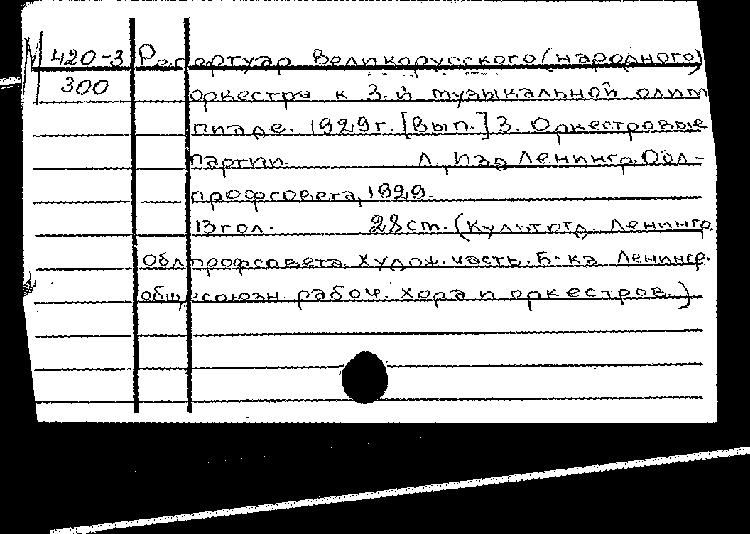 М 420-3 Репертуар великорусского (народного)
300
оркестра к 3-й музыкальной олим
пиаде. 1929 г. [Вып.] 3. Оркестровые
партии. Л., Изд. Ленингр. Обл-
профсовета, 1929.
13 гол. 28 ст. (Культотд. Ленингр.
облпрофсовета. Худож. часть. Б-ка Ленингр.
общесоюзн рабоч. хора и оркестров.)